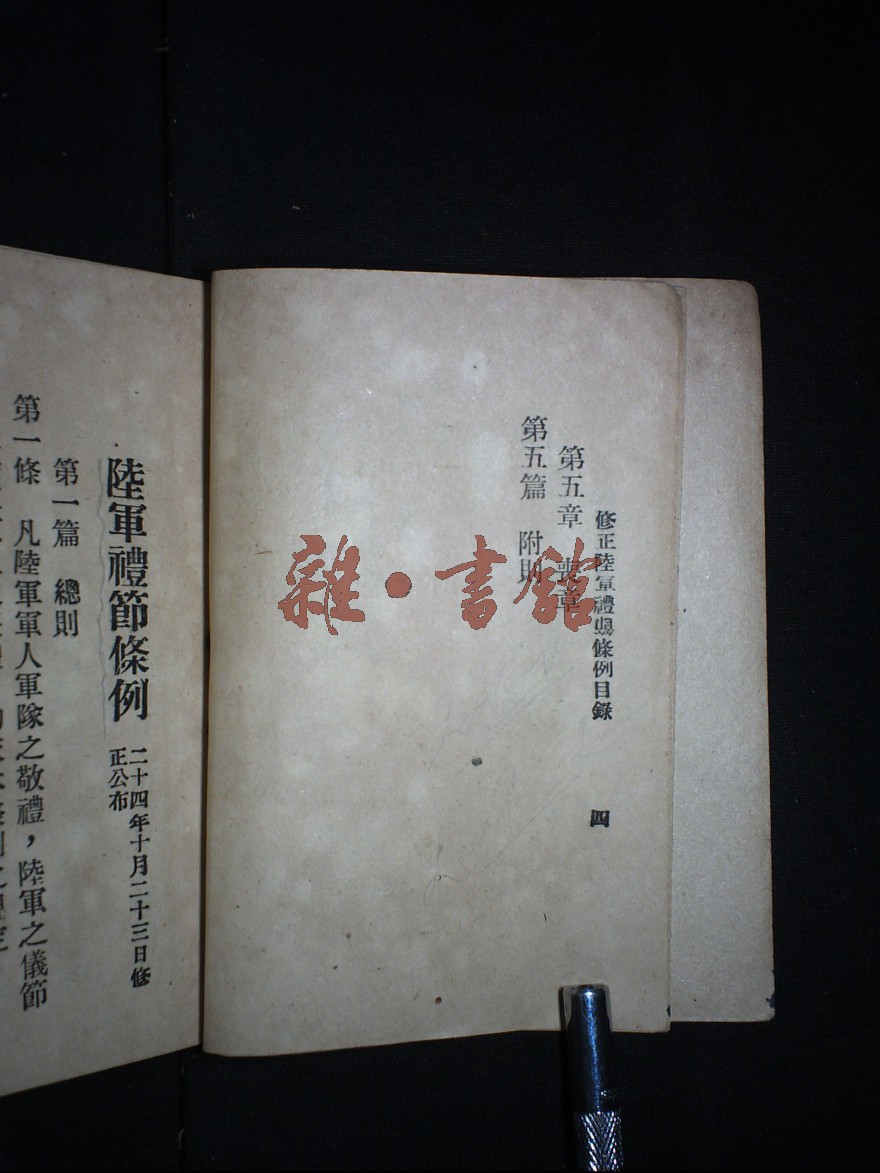 修正陸軍禮節條例目錄
四
第五章 喪章
第五篇 附則
陸軍禮節條例
二十四年十月二十三日修
正公布
第一篇 總則
第一條 凡陸軍軍人軍隊之敬禮，陸軍之儀節
雜·書館